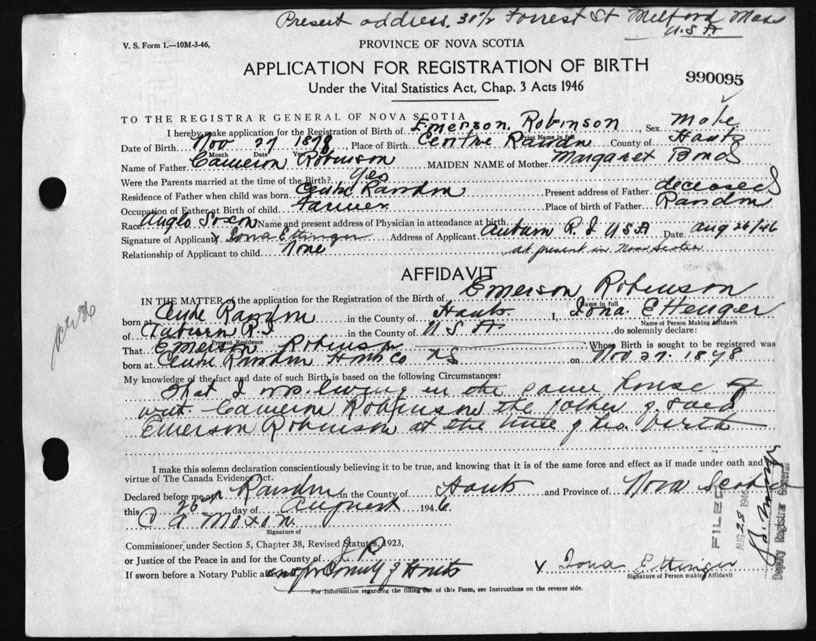 Present address. 38 1/2 Forrest St Milford Mass
U.S.A
V. S. Form 1.—10M-3-46,
PROVINCE OF NOVA SCOTIA
APPLICATION FOR REGISTRATION OF BIRTH
990095
Under the Vital Statistics Act, Chap. 3 Acts 1946
TO THE REGISTRAR GENERAL OF NOVA SCOTIA
I hereby make application for the Registration of Birth of Emerson Robinson Sex Male
Print Name in full
Date of Birth Nov 27 1878, Place of Birth Centre Rawdon County of Hants
Month Date
Name of Father Cameron Robinson MAIDEN NAME of Mother Margaret Bond
Were the Parents married at the time of Birth? Yes
Residence of Father when child was born Centre Rawdon Present address of Father deceased
Occupation of Father at Birth of child farmer Place of birth of Father Rawdon
Race Anglo Saxon Name and present address of Physician in attendance at birth
Signature of Applicant x Iona Ettinger Address of Applicant Auburn R. I U S A Date Aug 26/46
Relationship of Applicant to child None at present in Nova Scotia
AFFIDAVIT
IN THE MATTER of the application for the Registration of Birth of Emerson Robinson
Name in full
born at Centre Rawdon in the County of Hants I, Iona Ettenger
Name of Person Making Affidavit
of Auburn R I in the County of U. S. A. do solemnly declare:
Present Residence
That Emerson Robinson Whose Birth is sought to be registered was
born at Centre Rawdon Hants Co NS on Nov. 27. 1878
My knowledge of the fact and date of such Birth is based on the following Circumstances:
That I was living in the same house
with Cameron Robinson the father of said
Emerson Robinson at the time of his birth
I make this solemn declaration conscientiously believing it to be true, and knowing that it is of the same force and effect as if made under oath and
virtue of The Canada Evidence Act.
Declared before me at Rawdon in the County of Hants and Province of Nova Scotia
this 26 day of August 1946.
Signature of
Commissioner under Section 5, Chapter 38, Revised Statutes, 1923,
or Justice of the Peace in and for the County of J P
If sworn before a Notary Public in and for County of Hants
x Iona Ettinger
Signature of Person making Affidavit
For Information regarding the filling out of this Form, see Instructions on the reverse side.
FILED
AUG 28 1946
Deputy Registrar General